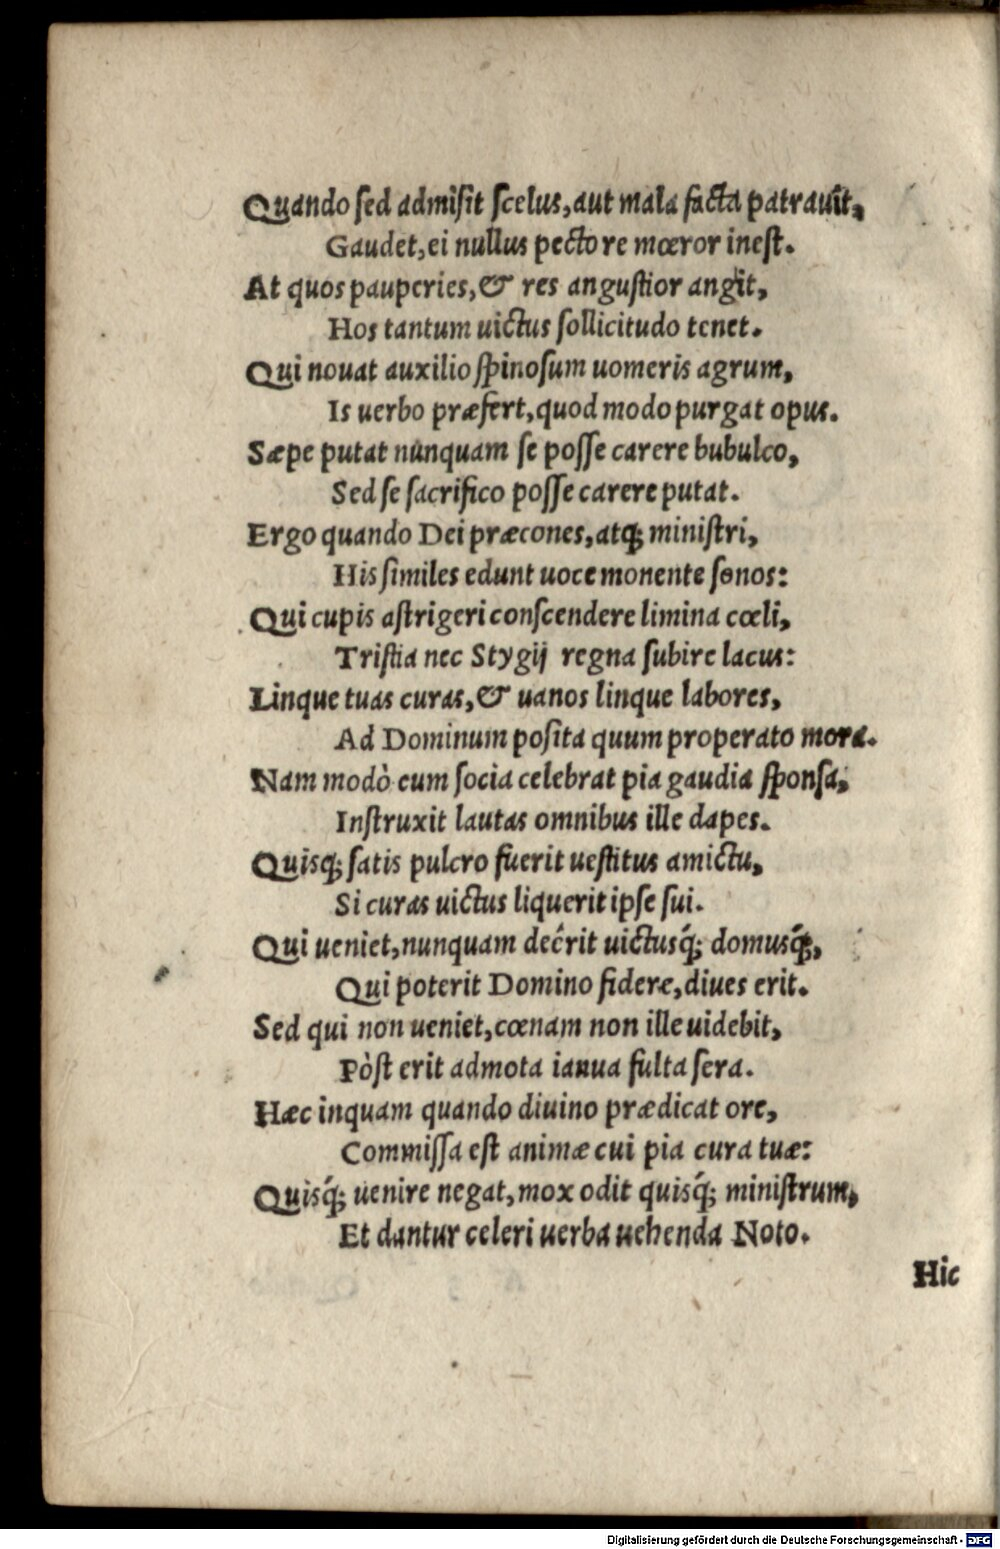 Quando ſed admiſit ſcelus, aut mala facta patrauit,
Gaudet, ei nullus pectore mœror ineſt.
At quos pauperies, & res anguſtior angit,
Hos tantum uictus ſollicitudo tenet.
Qui nouat auxilio ſpinoſum uomeris agrum,
Is uerbo præfert, quod modo purgat opus.
Sæpe putat nunquam ſe poſſe carere bubulco,
Sed ſe ſacrifico poſſe carere putat.
Ergo quando Dei præcones, atq; miniſtri,
His ſimiles edunt uoce monente ſonos:
Qui cupis aſtrigeri conſcendere limina cœli,
Triſtia nec Stygij regna ſubire lacus:
Linque tuas curas, & uanos linque labores,
Ad Dominum poſita quum properato mora.
Nam modò cum ſocia celebrat pia gaudia ſponſa,
Inſtruxit lautas omnibus ille dapes.
Quisq; ſatis pulcro fuerit ueſtitus amictu,
Si curas uictus liquerit ipſe ſui.
Qui ueniet, nunquam deérit uictusq́; domusq́;,
Qui poterit Domino fidere, diues erit.
Sed qui non ueniet, cœnam non ille uidebit,
Pòſt erit admota ianua fulta ſera.
Hæc inquam quando diuino prædicat ore,
Commiſſa eſt animæ cui pia cura tuæ:
Quisq́; uenire negat, mox odit quisq́; miniſtrum,
Et dantur celeri uerba uehenda Noto.
Hic
Digitalisierung gefördert durch die Deutsche Forschungsgemeinschaft - DFG